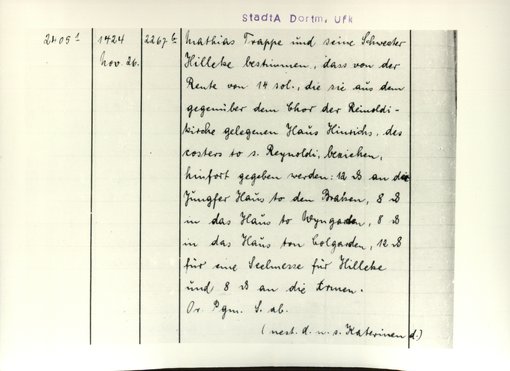 StadtA Dortm. Ufk
2405¹ 1424 2267b Mathias Trappe und seine Schwester
Nov. 26. Hilleke bestimmen, dass von der
Rente von 14 sol., die sie aus dem
gegenüber dem Chor der Reinoldi-
kirche gelegenen Haus Hinrichs, des
costers to s. Reynoldi, beziehen,
hinfort gegeben werden: 12 ₰ an das
Jungfer Haus to den Braken, 8 ₰
in das Haus to Wyngarden, 8 ₰
in das Haus ton Colgarden, 12 ₰
für eine Seelmesse für Hilleke
und 8 ₰ an die Armen.
Or. Pgm. S. ab.
(nest. d. u. s. Katerinen d.)